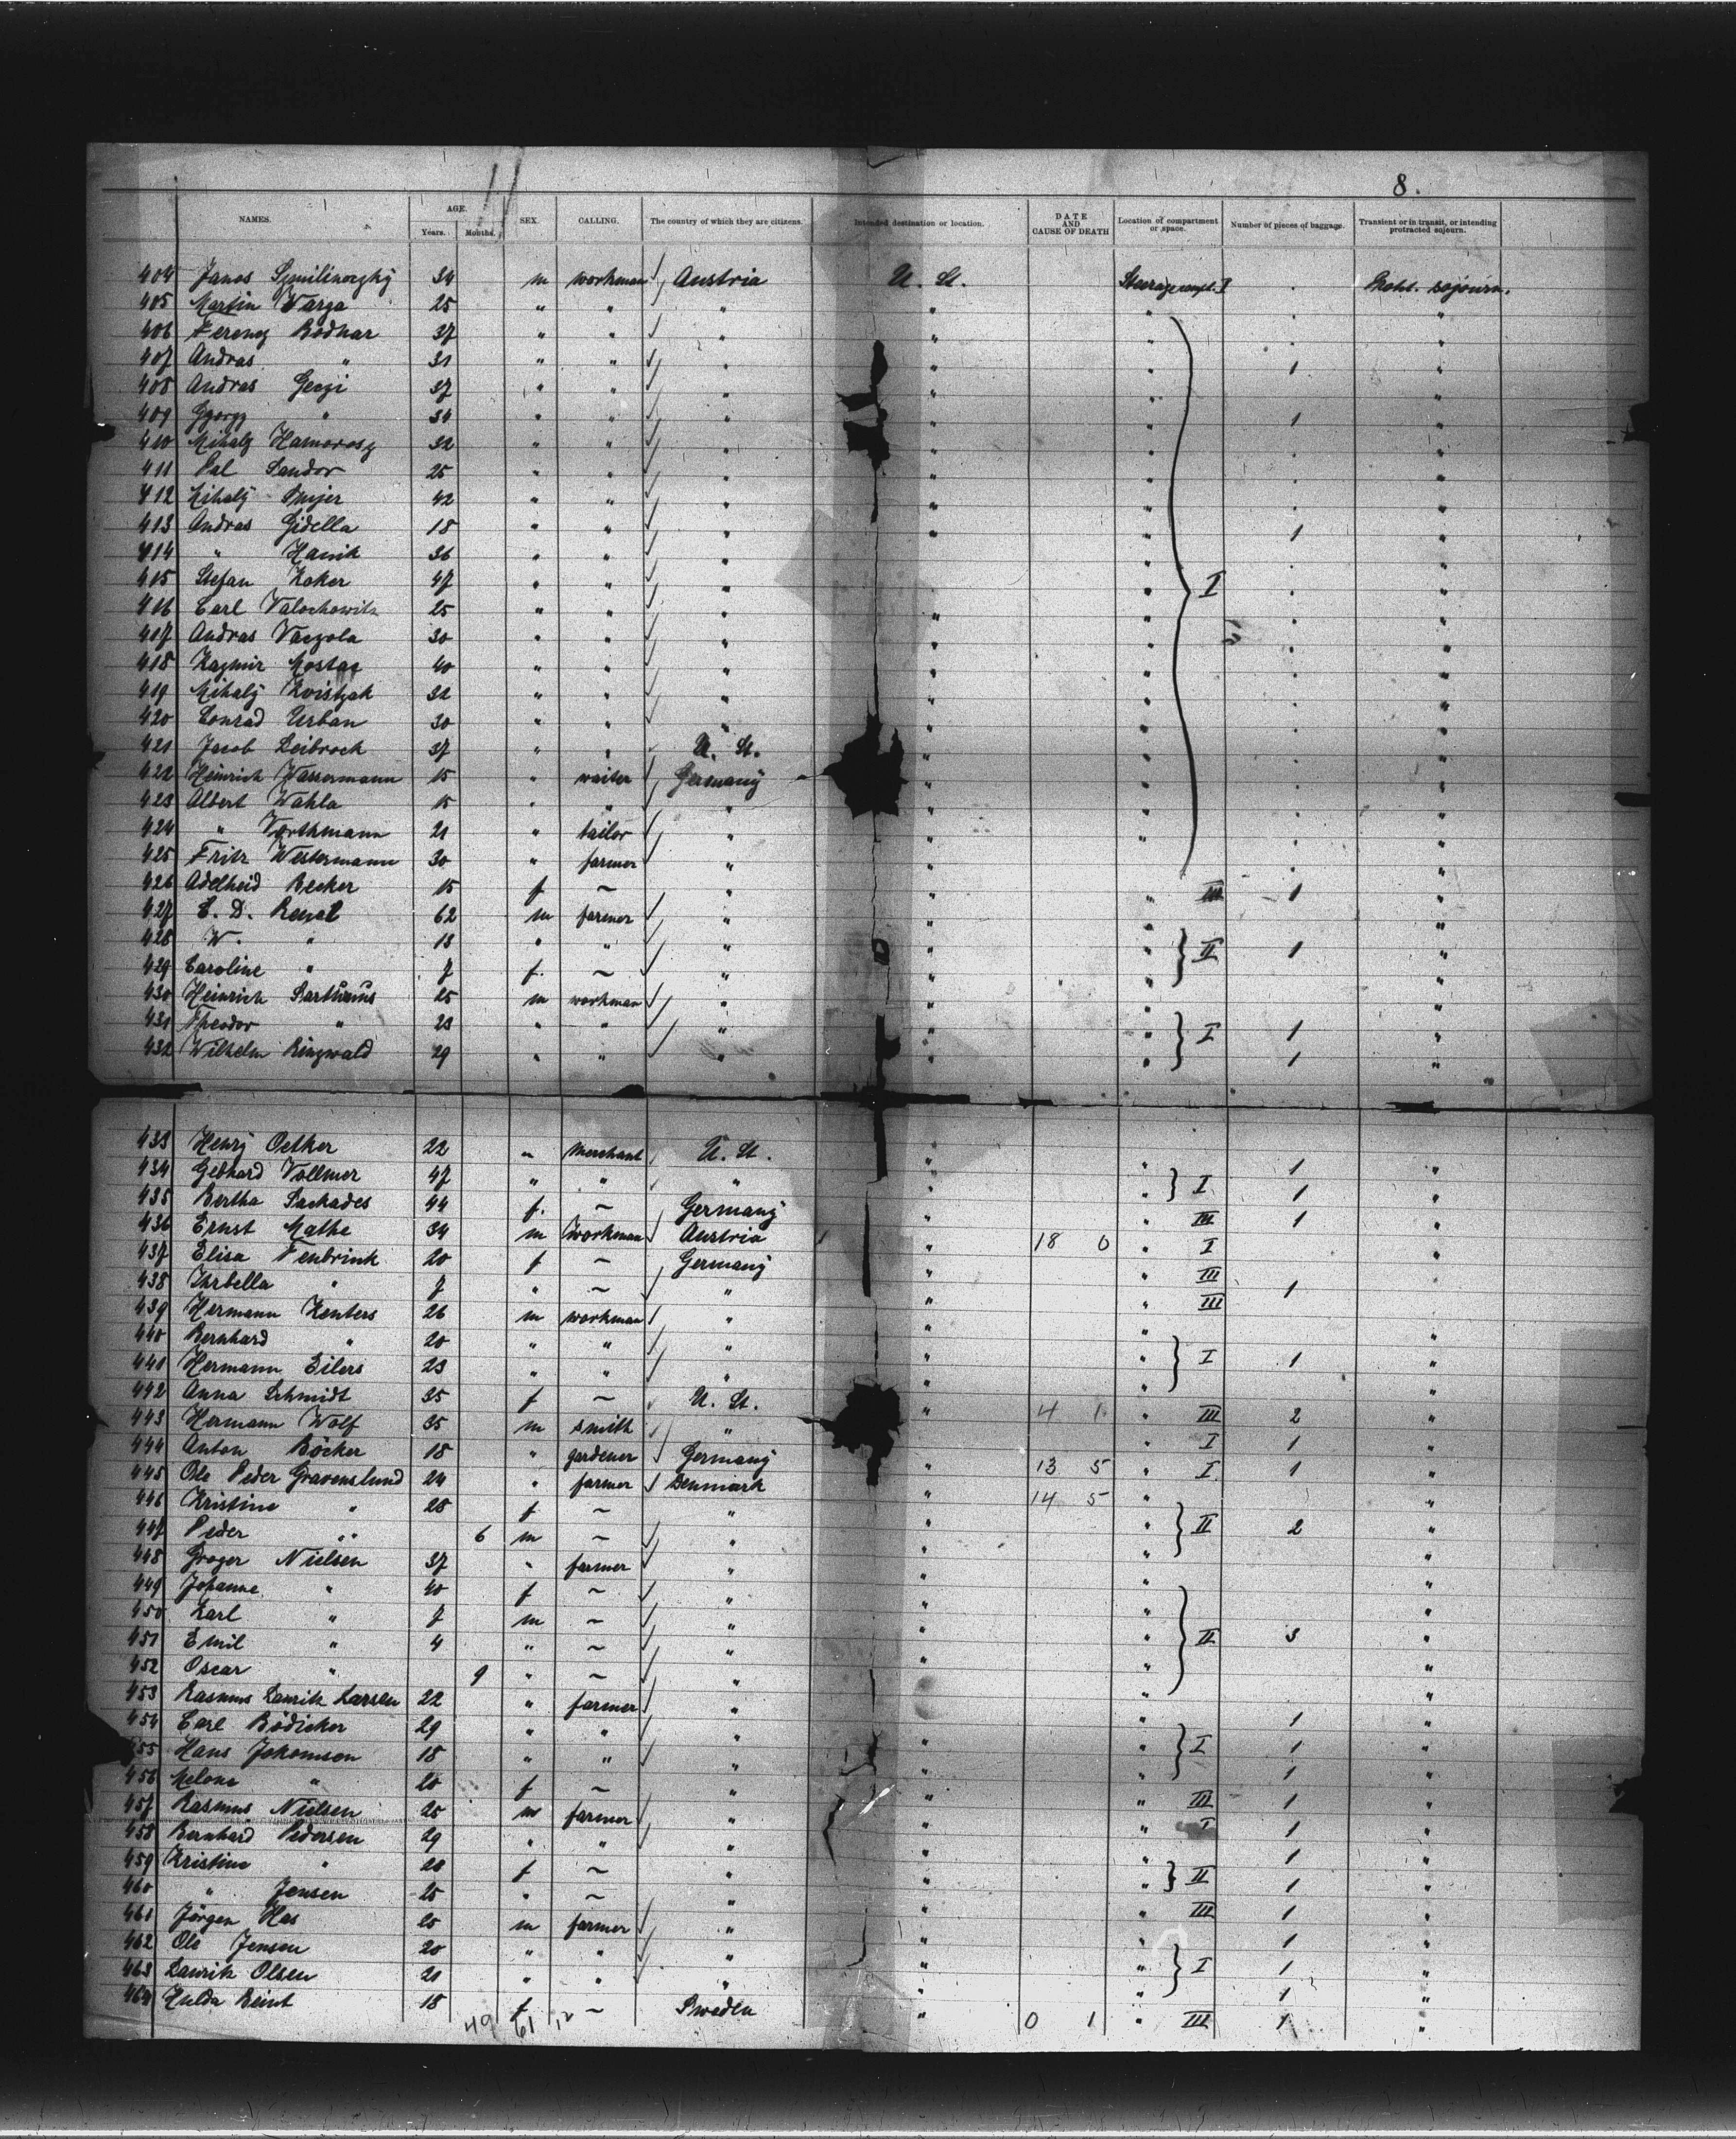 11
8.
NAMES. AGE. Years. Months. SEX. CALLING. The country of which they are citizens. Intended destination or location. DATE AND CAUSE OF DEATH Location of compartment or space. Number of pieces of baggage. Transient or in transit, or intending protracted sojourn.
404 Janos 34 m workman Austria U. St. Steerage compt. I sojourn.
405 Martin Varga 25 " " " " " "
406 Ferencz Bodnar 37 " " " " " "
407 Andras " 31 " " " " " 1 "
408 Andras Geczi 37 " " " " " "
409 György " 34 " " " " " 1 "
410 Mihaly Hamorosz 32 " " " " " "
411 Pal Sandor 25 " " " " " "
412 Mihaly 42 " " " " " "
413 Andras Gidella 18 " " " " " 1 "
414 " Hanik 36 " " " " " "
415 Stefan Koker 47 " " " " I "
416 Carl Valochowitz 25 " " " " " "
417 Andras Vaczola 30 " " " " " "
418 Kazmir Mostac 40 " " " " " "
419 Mihaly Kvistzak 32 " " " " " "
420 Conrad Urban 30 " " " " " "
421 Jacob Leibrock 37 " " U. St. " " "
422 Heinrich Wassermann 15 " waiter Germany " " "
423 Albert Wahla 15 " " " " " "
424 " Vorthmann 21 " tailor " " " "
425 Fritz Westermann 30 " farmer " " " "
426 Adelheid Becker 15 f ~ " " " III 1 "
427 E. D. 62 m farmer " " " "
428 W. " 13 " " " " " II 1 "
429 Caroline " 7 f. ~ " " " "
430 Heinrich 25 m workman " " " "
431 Theodor " 23 " " " " " I 1 "
432 Wilhelm Ringwald 29 " " " " " 1 "
433 Henry Oetker 22 " Merchant U. St. " " 1 "
434 Gebhard Vollmer 47 " " " " " I 1 "
435 Bertha Packades 44 f. ~ Germany " " III 1 "
436 Ernst Mathe 34 m workman Austria " 18 0 " I "
437 Elisa Fenbrink 20 f ~ Germany " " III
438 " 7 " ~ " " " III 1
439 Hermann Kenters 26 m workman " " " "
440 Bernhard " 20 " " " " " I 1 "
441 Hermann Eilers 23 " " " " " "
442 Anna Schmidt 35 f ~ U. St. " 4 1 " III 2 "
443 Hermann Wolf 35 m smith " " I 1 "
444 Anton Böcker 18 " gardener Germany " 13 5 " I. 1 "
445 Ole Peder Gravenslund 24 " farmer Denmark " 14 5 " "
446 Kristine " 28 f ~ " " " II 2 "
447 Peder " 6 m ~ " " " "
448 Groger Nielsen 37 " farmer " " " "
449 Johanne " 40 f ~ " " " "
450 Karl " 7 m ~ " " " "
451 Emil " 4 " ~ " " " II 3 "
452 Oscar " 9 " ~ " " " "
453 Rasmus Laurik Larsen 22 " farmer " " 1 "
454 Carl Bödicker 29 " " " " " I 1 "
455 Hans 18 " " " " " 1 "
456 " 20 f ~ " " " III 1 "
457 Rasmus Nielsen 25 m farmer " " " I 1 "
458 Bernhard Pedersen 29 " " " " " 1 "
459 Kristine " 28 f ~ " " " II 1 "
460 " Jensen 25 " ~ " " " III 1 "
461 Jörgen Has 25 m farmer " " 1 "
462 Ole Jensen 20 " " " " " I 1 "
463 Laurik Olsen 21 " " " " " 1 "
464 Hulda 18 f ~ Sweden " 0 1 " III 1 "
49 61 12